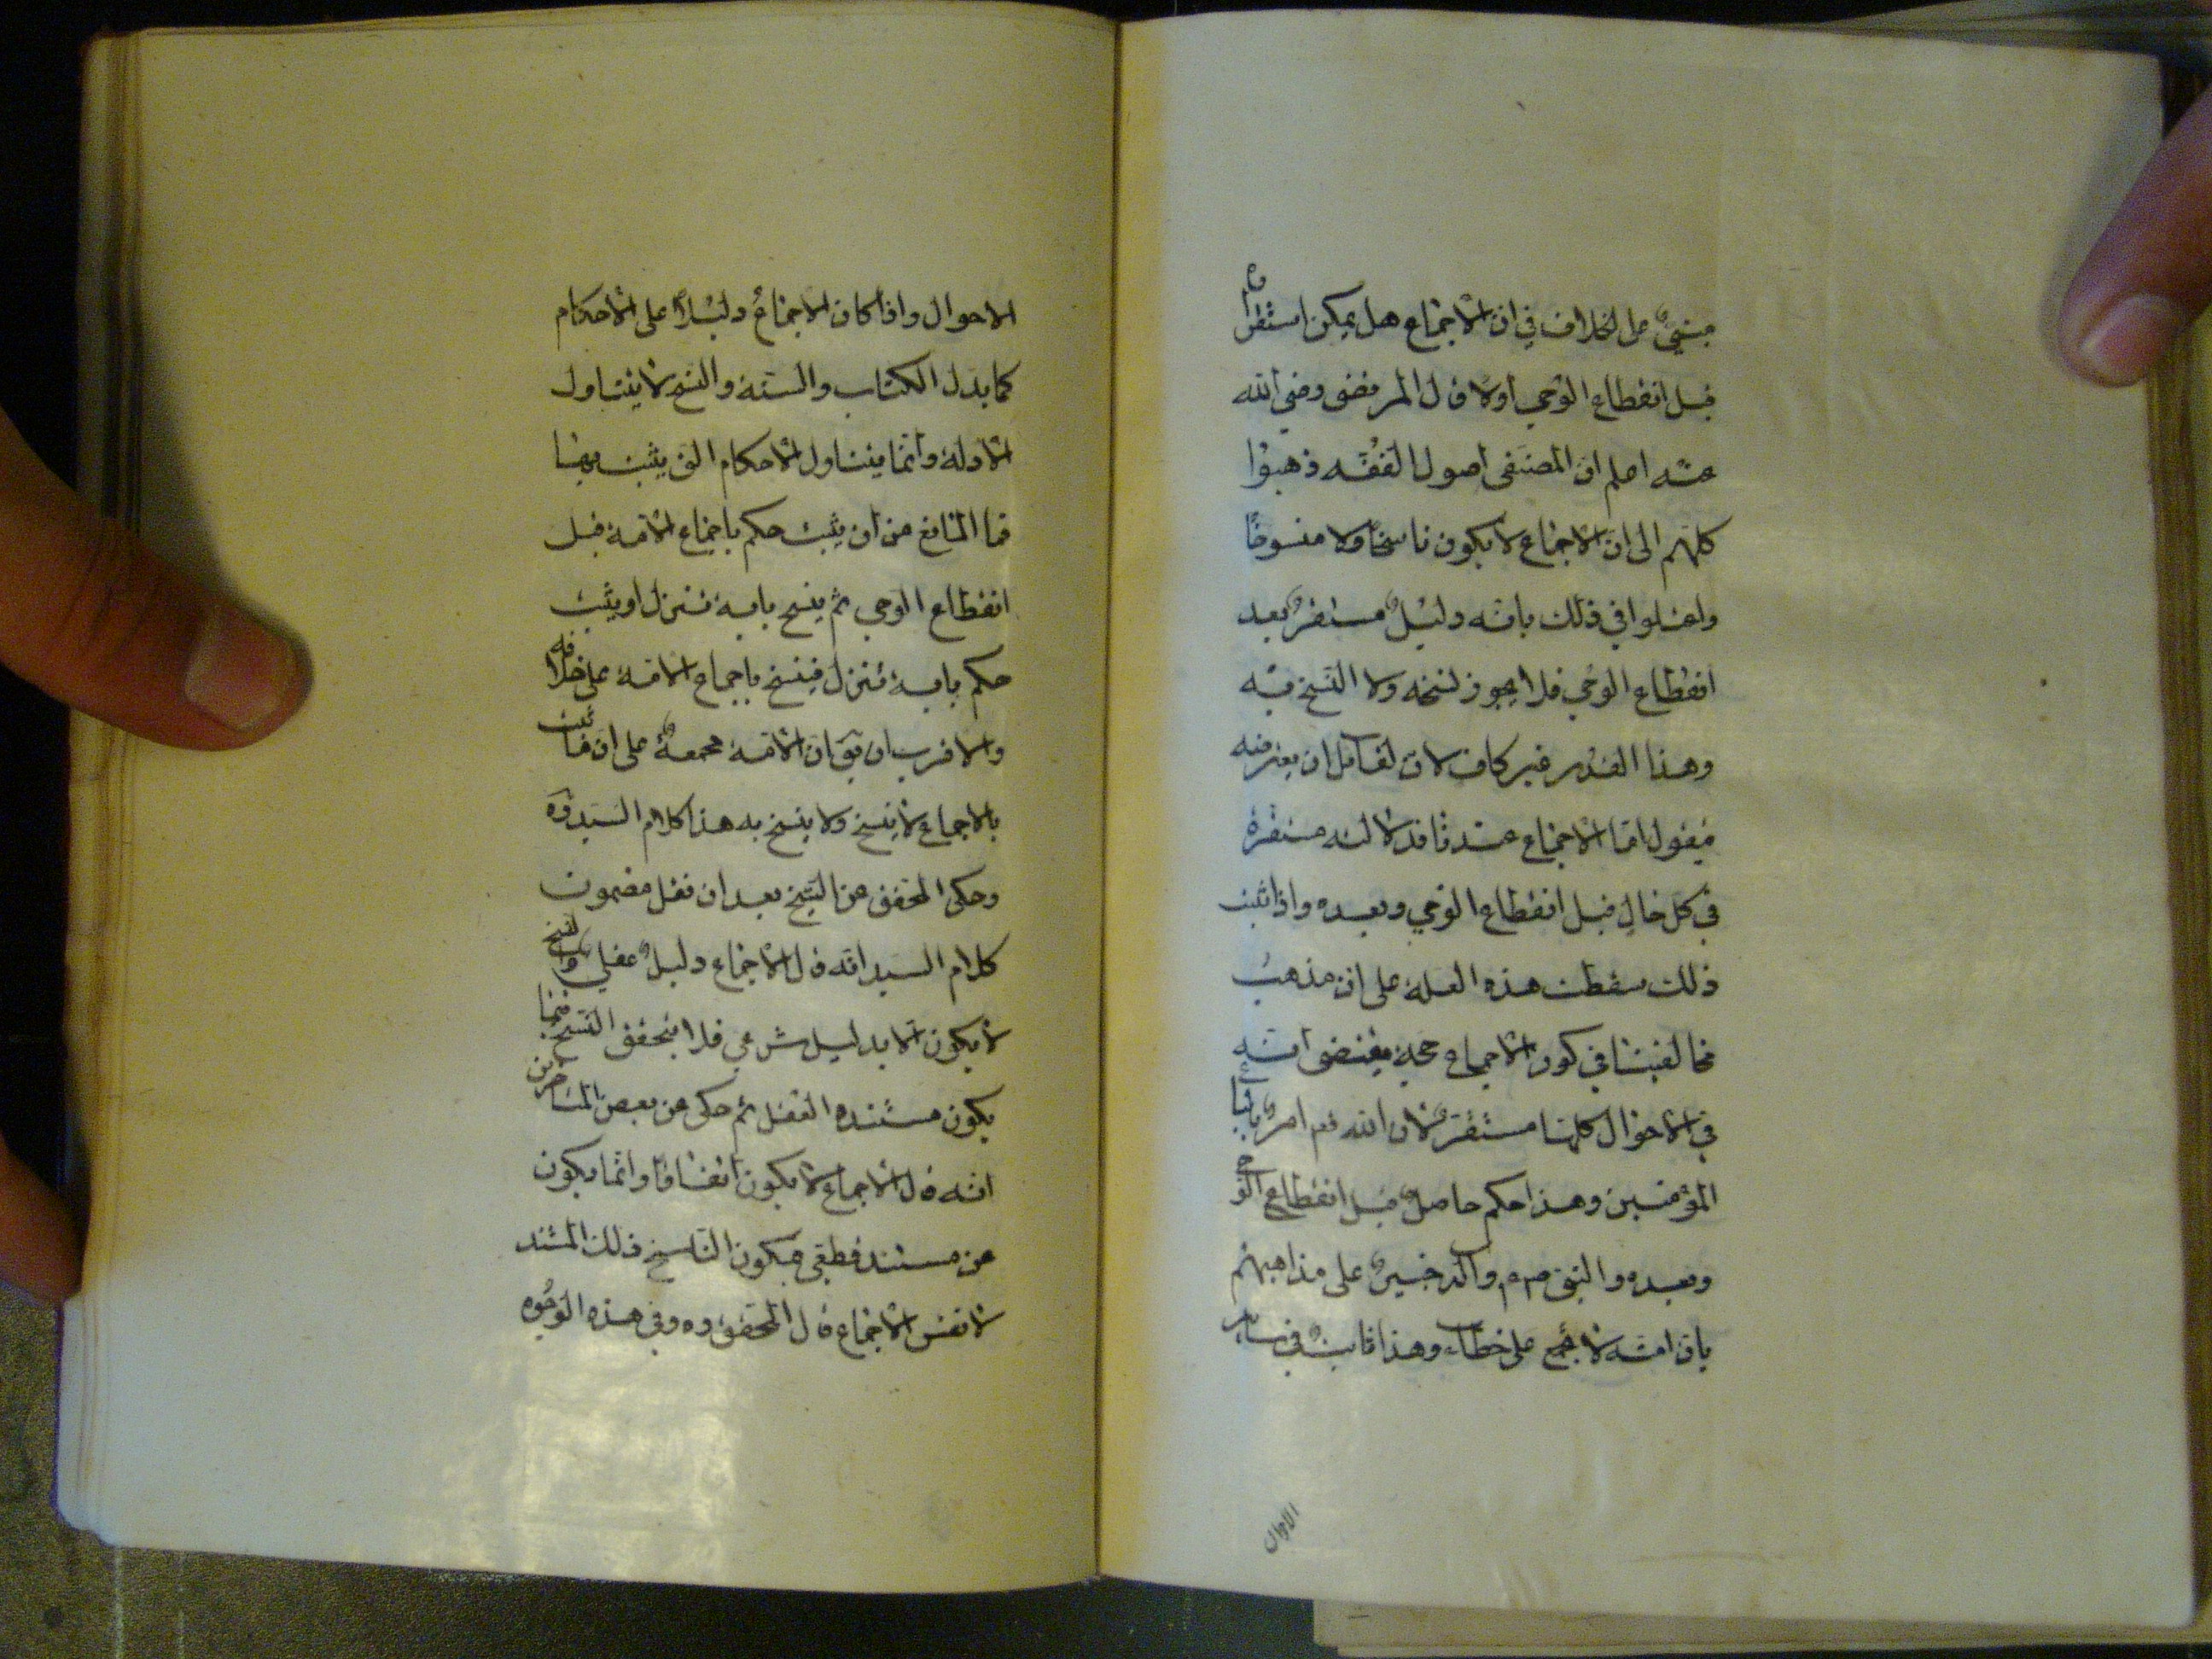 مبنيٌ على الخلاف في ان الاجماع هل يمكن استقراره
قبل انقطاع الوحي أولا قال المرتضى رضي الله
عنه اعلم ان المصنفي اصول الفقه ذهبوا
كلهم الى ان الاجماع لا يكون ناسخا ولا منسوخا
واعتلوا في ذلك بانه دليلٌ مستقرٌ بعد
انقطاع الوحي فلا يجوز نسخه ولا النسخ به
وهذا القدر غير كاف لان لقائل ان يعترضه
فيقول اما الاجماع عندنا فدلالته مستقرة
في كل حال قبل انقطاع الوحي وبعده واذا ثبت
ذلك سقطت هذه العلة على ان مذهب
مخالفينا في كون الاجماع حجة يقتضى انه
في الاحوال كلها مستقرٌ لان الله تعم امر باتباع
المؤمنين وهذا حكم حاصلٌ قبل انقطاع الوحي
وبعده والنبي صم والد خبرٌ على مذاهبهم
بان امته لا تجمع على خطاء وهذا ثابتٌ في سائر
الاحوال
الاحوال واذا كان الاجماعُ دليلاً على الاحكام
كما يدل الكتاب والسنة والنسخ لا يتناول
الادلة وانما يتناول الاحكام التي يثبت بها
فما المانع من ان يثبت حكم باجماع الامة قبل
انقطاع الوحي ثم ينسخ باية تنزل او يثبت
حكم باية تنزل فينسخ باجماع الامة على خلافه
والاقرب ان يق ان الامة مجمعةٌ على ان ما ثبت
بالاجماع لا ينسخ ولا ينسخ به هذا كلام السيد ره
وحكى المحقق عن الشيخ بعد ان نقل مضمون
كلام السيد انه قال الاجماع دليلٌ عقلي والنسخ
لا يكون الا بدليل شرعي فلا يتحقق النسخ فيما
يكون مستنده العقل ثم حكى عن بعض المتاخرين
انه قال الاجماع لا يكون اتفاقا وانما يكون
عن مستند قطعي فيكون الناسخ ذلك المستند
لا نفس الاجماع قال المحقق ره وفي هذه الوجوه